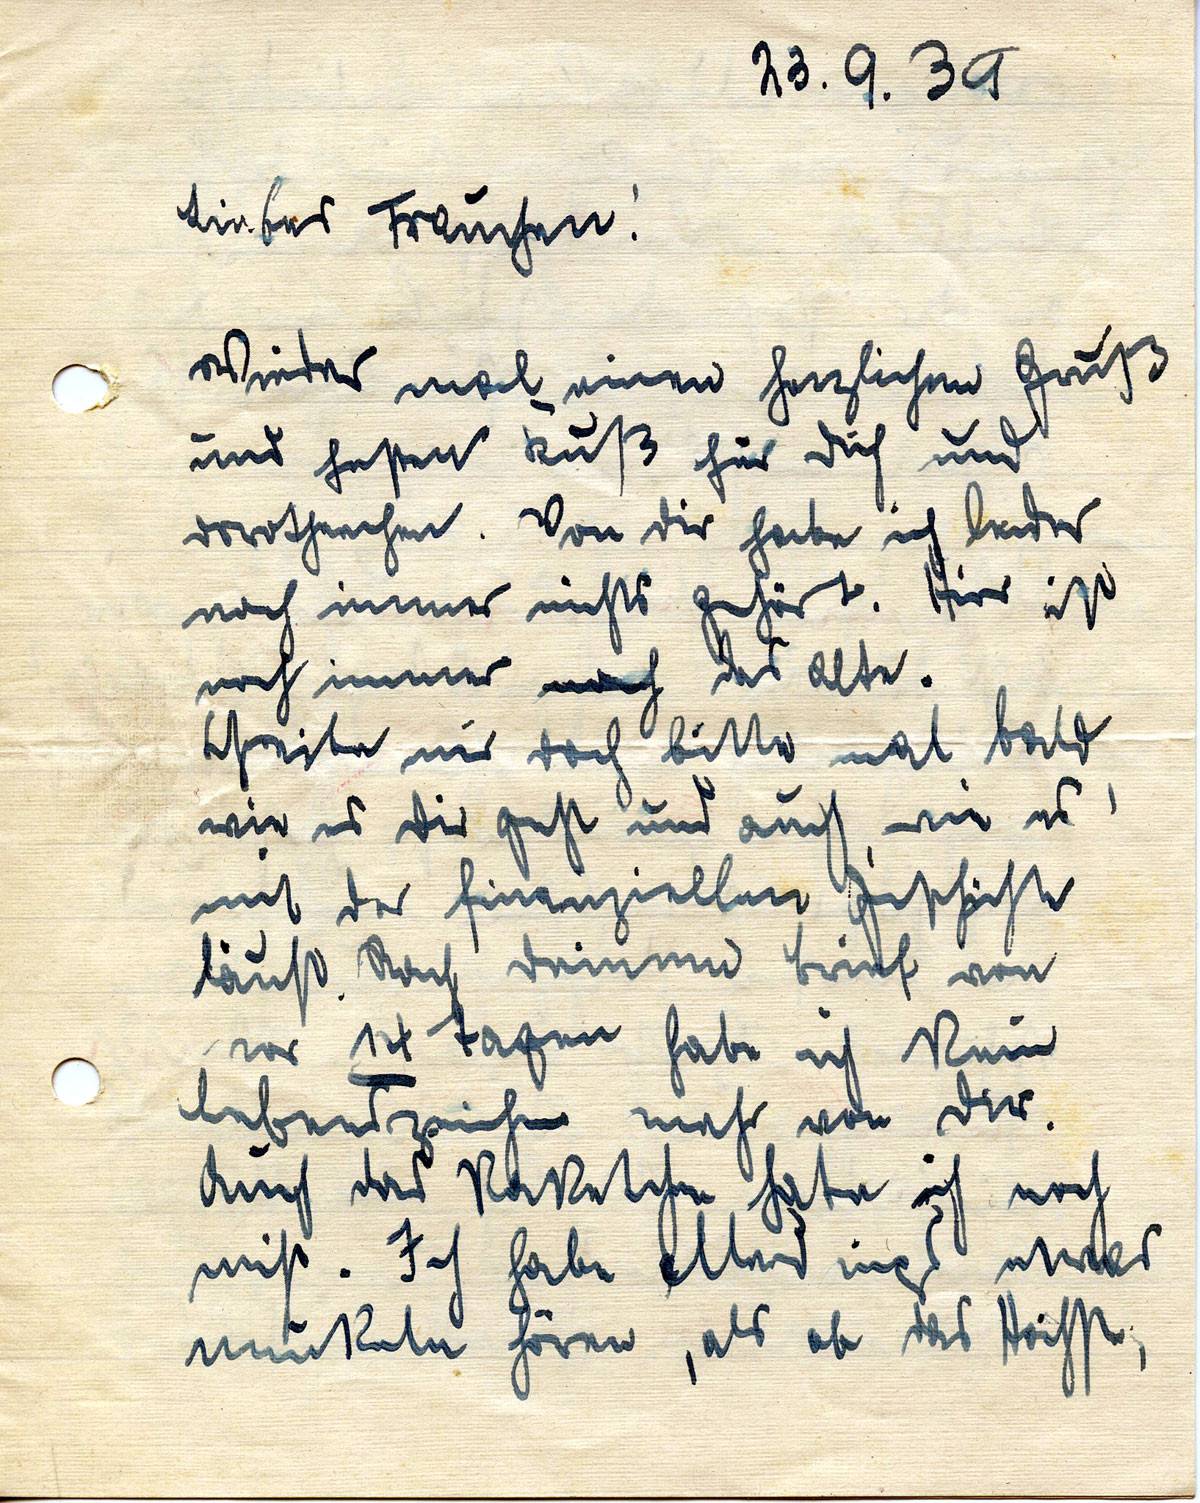 23.9.39
Liebes Frauchen!
Wieder mal einen herzlichen Gruß
und festen Kuß für Dich und
Dorotheechen. Von Dir habe ich leider
noch immer nichts gehört. Hier ist
noch immer das Alte.
Schreibe mir doch bitte mal bald
wie es Dir geht und auch wie es
mit der finanziellen Geschichte
läuft. Nach Deinem Brief von
vor 14 Tagen habe ich kein
Lebenszeichen mehr von Dir.
Auch das Paketchen habe ich noch
nicht. Ich habe allerdings etwas
munkeln hören, als ob das